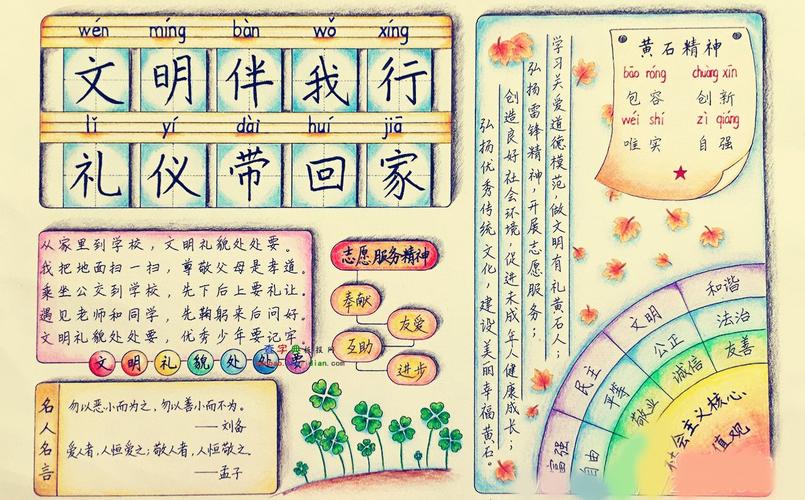 wén míng bàn wǒ xíng
文明伴我行
lǐ yí dài huí jiā
礼仪带回家
从家里到学校，文明礼貌处处要。
我把地面扫一扫，尊敬父母是孝道。
乘坐公交到学校，先下后上要礼让。
遇见老师和同学，先鞠躬来后问好。
文明礼貌处处要，优秀少年要记牢
文明礼貌处处要
名人名言
勿以恶小而为之，勿以善小而不为。
——刘备
爱人者，人恒爱之；敬人者，人恒敬之。
——孟子
志愿服务精神
奉献
友爱
互助
进步
学习关爱道德模范，做文明有礼黄石人；
弘扬雷锋精神，开展志愿服务；
创造良好社会环境，促进未成年人健康成长；
弘扬优秀传统文化，建设美丽幸福黄石。
黄石精神
bāo róng chuàng xīn
包容 创新
wéi shí zì qiáng
唯实 自强
富强
民主
文明
和谐
自由
平等
公正
法治
敬业
诚信
友善
会主义核心
值观